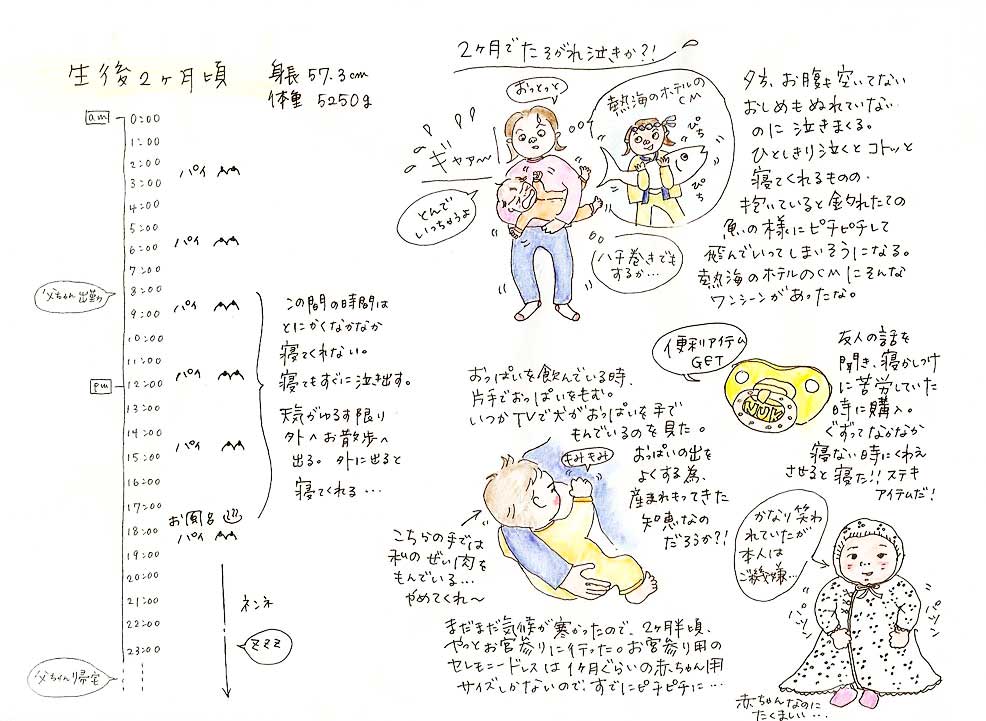 生後2ヶ月頃
身長 57.3cm
体重 5250g
am
0:00
1:00
2:00
パイ
3:00
4:00
5:00
6:00
パイ
7:00
8:00
父ちゃん出勤
9:00
パイ
10:00
11:00
pm
12:00
パイ
13:00
14:00
15:00
パイ
16:00
17:00
お風呂
18:00
パイ
19:00
20:00
21:00
22:00
23:00
父ちゃん帰宅
ネンネ
ZZZ
この間の時間は
とにかくなかなか
寝てくれない。
寝てもすぐに泣き出す。
天気がゆるす限り
外へお散歩へ
出る。外に出ると
寝てくれる…
2ヶ月でたそがれ泣きか?!
おっとっと
ギャァ〜
とんで
いっちゃうよ
熱海のホテルの
CM
ぴち
ぴち
ハチ巻きでも
するか…
夕方、お腹も空いてない
おしめもぬれていない
のに泣きまくる。
ひとしきり泣くとコトッと
寝てくれるものの、
抱いていると釣れたての
魚の様にピチピチして
飛んでいってしまいそうになる。
熱海のホテルのCMにそんな
ワンシーンがあったな。
便利アイテム
GET
NUK
友人の話を
聞き、寝かしつけ
に苦労していた
時に購入。
ぐずってなかなか
寝ない時にくわえ
させると寝た!!ステキ
アイテムだ!
おっぱいを飲んでいる時、
片手でおっぱいをもむ。
いつかTVで犬がおっぱいを手で
もんでいるのを見た。
おっぱいの出を
よくする為、
産まれもってきた
知恵なの
だろうか?!
もみもみ
こちらの手では
私のぜい肉を
もんでいる…
やめてくれ〜
まだまだ気候が寒かったので、2ヶ月半頃、
やっとお宮参りに行った。お宮参り用の
セレモニードレスは1ヶ月ぐらいの赤ちゃん用
サイズしかないので、すでにピチピチに…
かなり笑わ
れていたが
本人は
ご機嫌…
パツン
パツン
赤ちゃんなのに
たくましい…